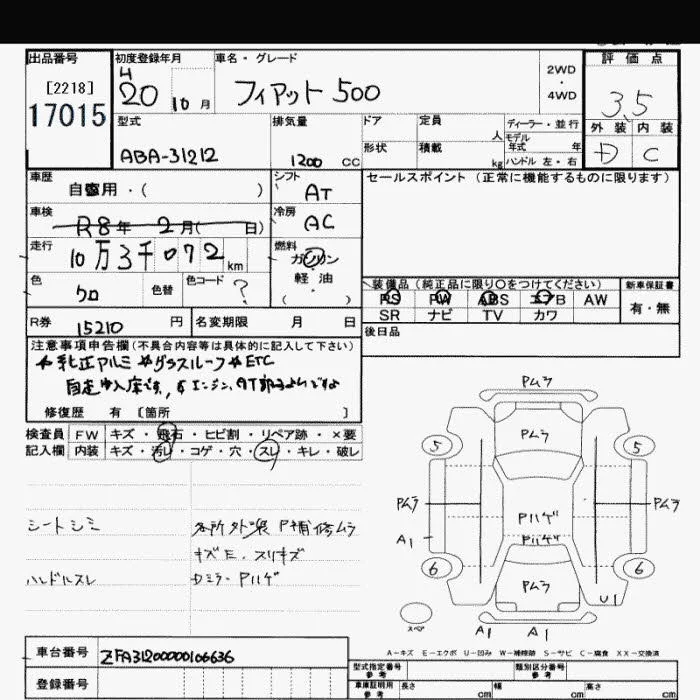 出品番号 初度登録年月 車名・グレード 評価点
[2218] H 2WD
17015 20 10月 フィアット 500 ・ 3.5
4WD
型式 排気量 ドア 定員 ディーラー・並行 外装 内装
人 モデル
ABA-31212 1200 CC 形状 積載 年式 年 D C
kg ハンドル 左・右
車歴 シフト セールスポイント (正常に機能するものに限ります)
自家用・( ) AT
車検 冷房
R8年 2月( 日) AC
走行 燃料
10万3千072 km ガソリン
軽・油
色 色替 色コード ( )
クロ ?
装備品 (純正品に限り○をつけてください) 新車保証書
PS PW ABS エアB AW 有・無
SR ナビ TV カワ
R券 15210 円 名変期限 月 日
後日品
注意事項申告欄(不具合内容等は具体的に記入して下さい)
*純正アルミ *グラスルーフ *ETC
修復歴 有 [箇所 ]
検査員 FW キズ・飛石・ヒビ割・リペア跡・×要
記入欄 内装 キズ・汚レ・コゲ・穴・スレ・キレ・破レ
シートシミ 各所外装 P補修ムラ
キズE、スリキズ
ハンドルスレ Dミラー Pハゲ
Pムラ
Pムラ
5 5
Pムラ Pムラ
Pハゲ
A1 Pハゲ
6 6
Pムラ
U1
スペア
A1 A1
A-キズ E-エクボ U-凹み W-補修跡 S-サビ C-腐食 XX-交換済
車台番号 ZFA31200000106636
登録番号
型式指定番号 参考 類別区分番号 参考
車庫証明用 参考 長さ cm 幅 cm 高さ cm